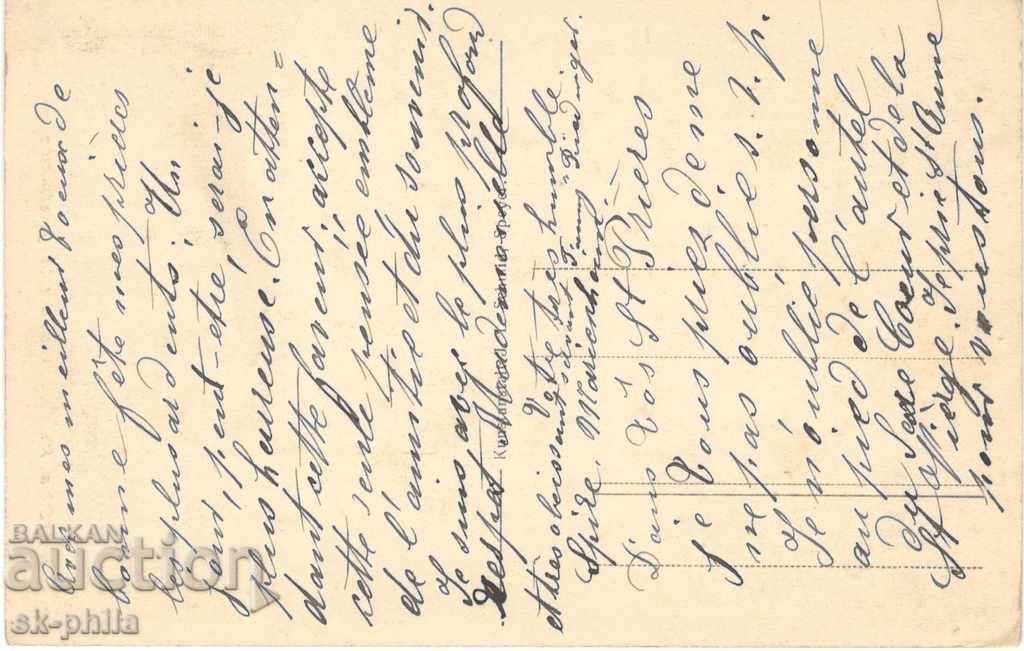 tous mes meilleurs voeux de
bonne fête mes prières
les plus ardents. Un
jour, peut-etre, serai-je
plus heureuse. En atten=
dant cette faveur, accepte
cette seule pensée emblème
de l'amitié et du souvenir.
Je suis avec le plus profond
respect
Votre très humble
et très obeissante servante Fanny
Spide. Marienheim
Dans Vos St Prières
je Vous pries de me
ne pas oublié s.v.p.
Je n'oublié personne
au pied de l'autel
Du Sacre Coeur et de la
St Vièrge. Je prie St Anne
pour vous tous.
BALKAN
auction
sk-phila